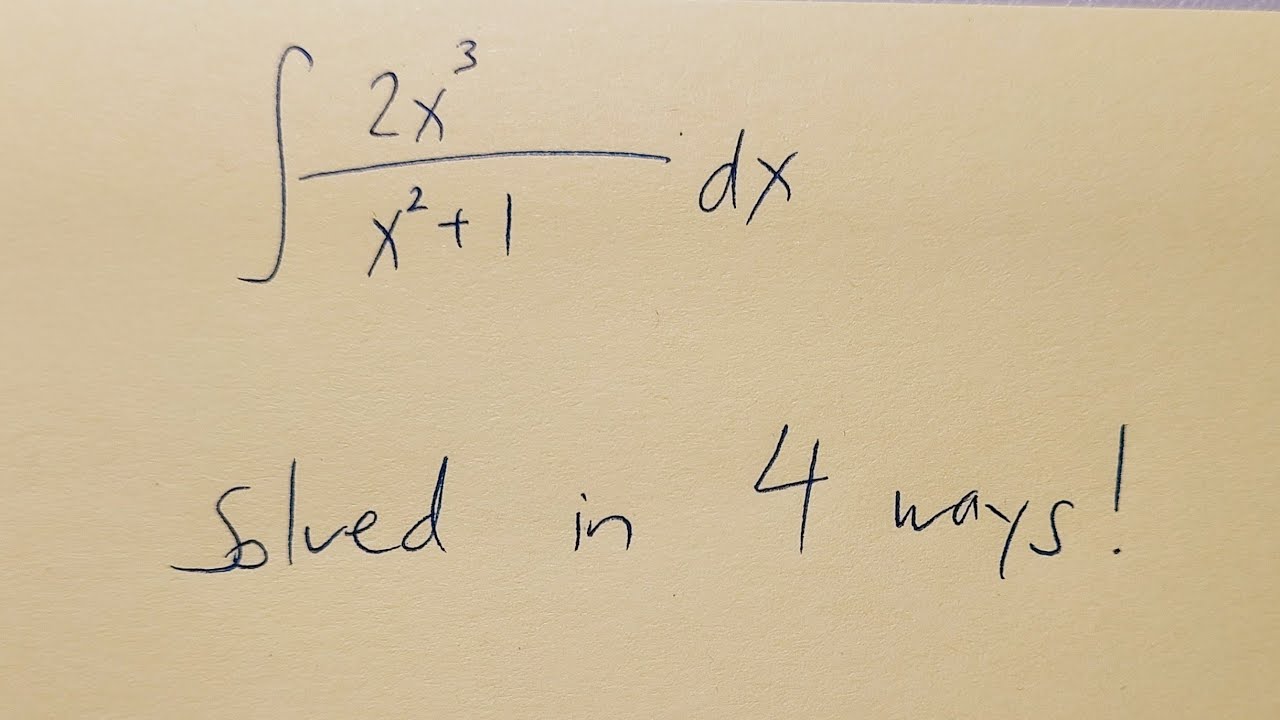 ∫ 2x³/x²+1 dx
Solved in 4 ways!